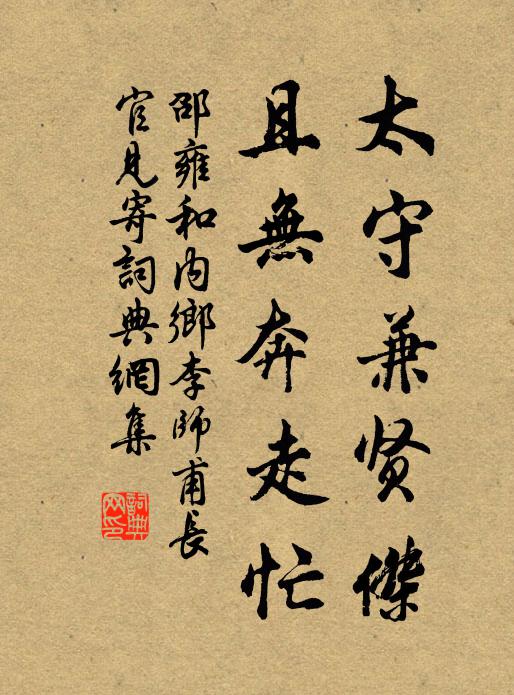 太守兼贤傑
且無奔走忙
邵雍和内鄉李師甫長
官見寄詞典網集
詞典网印